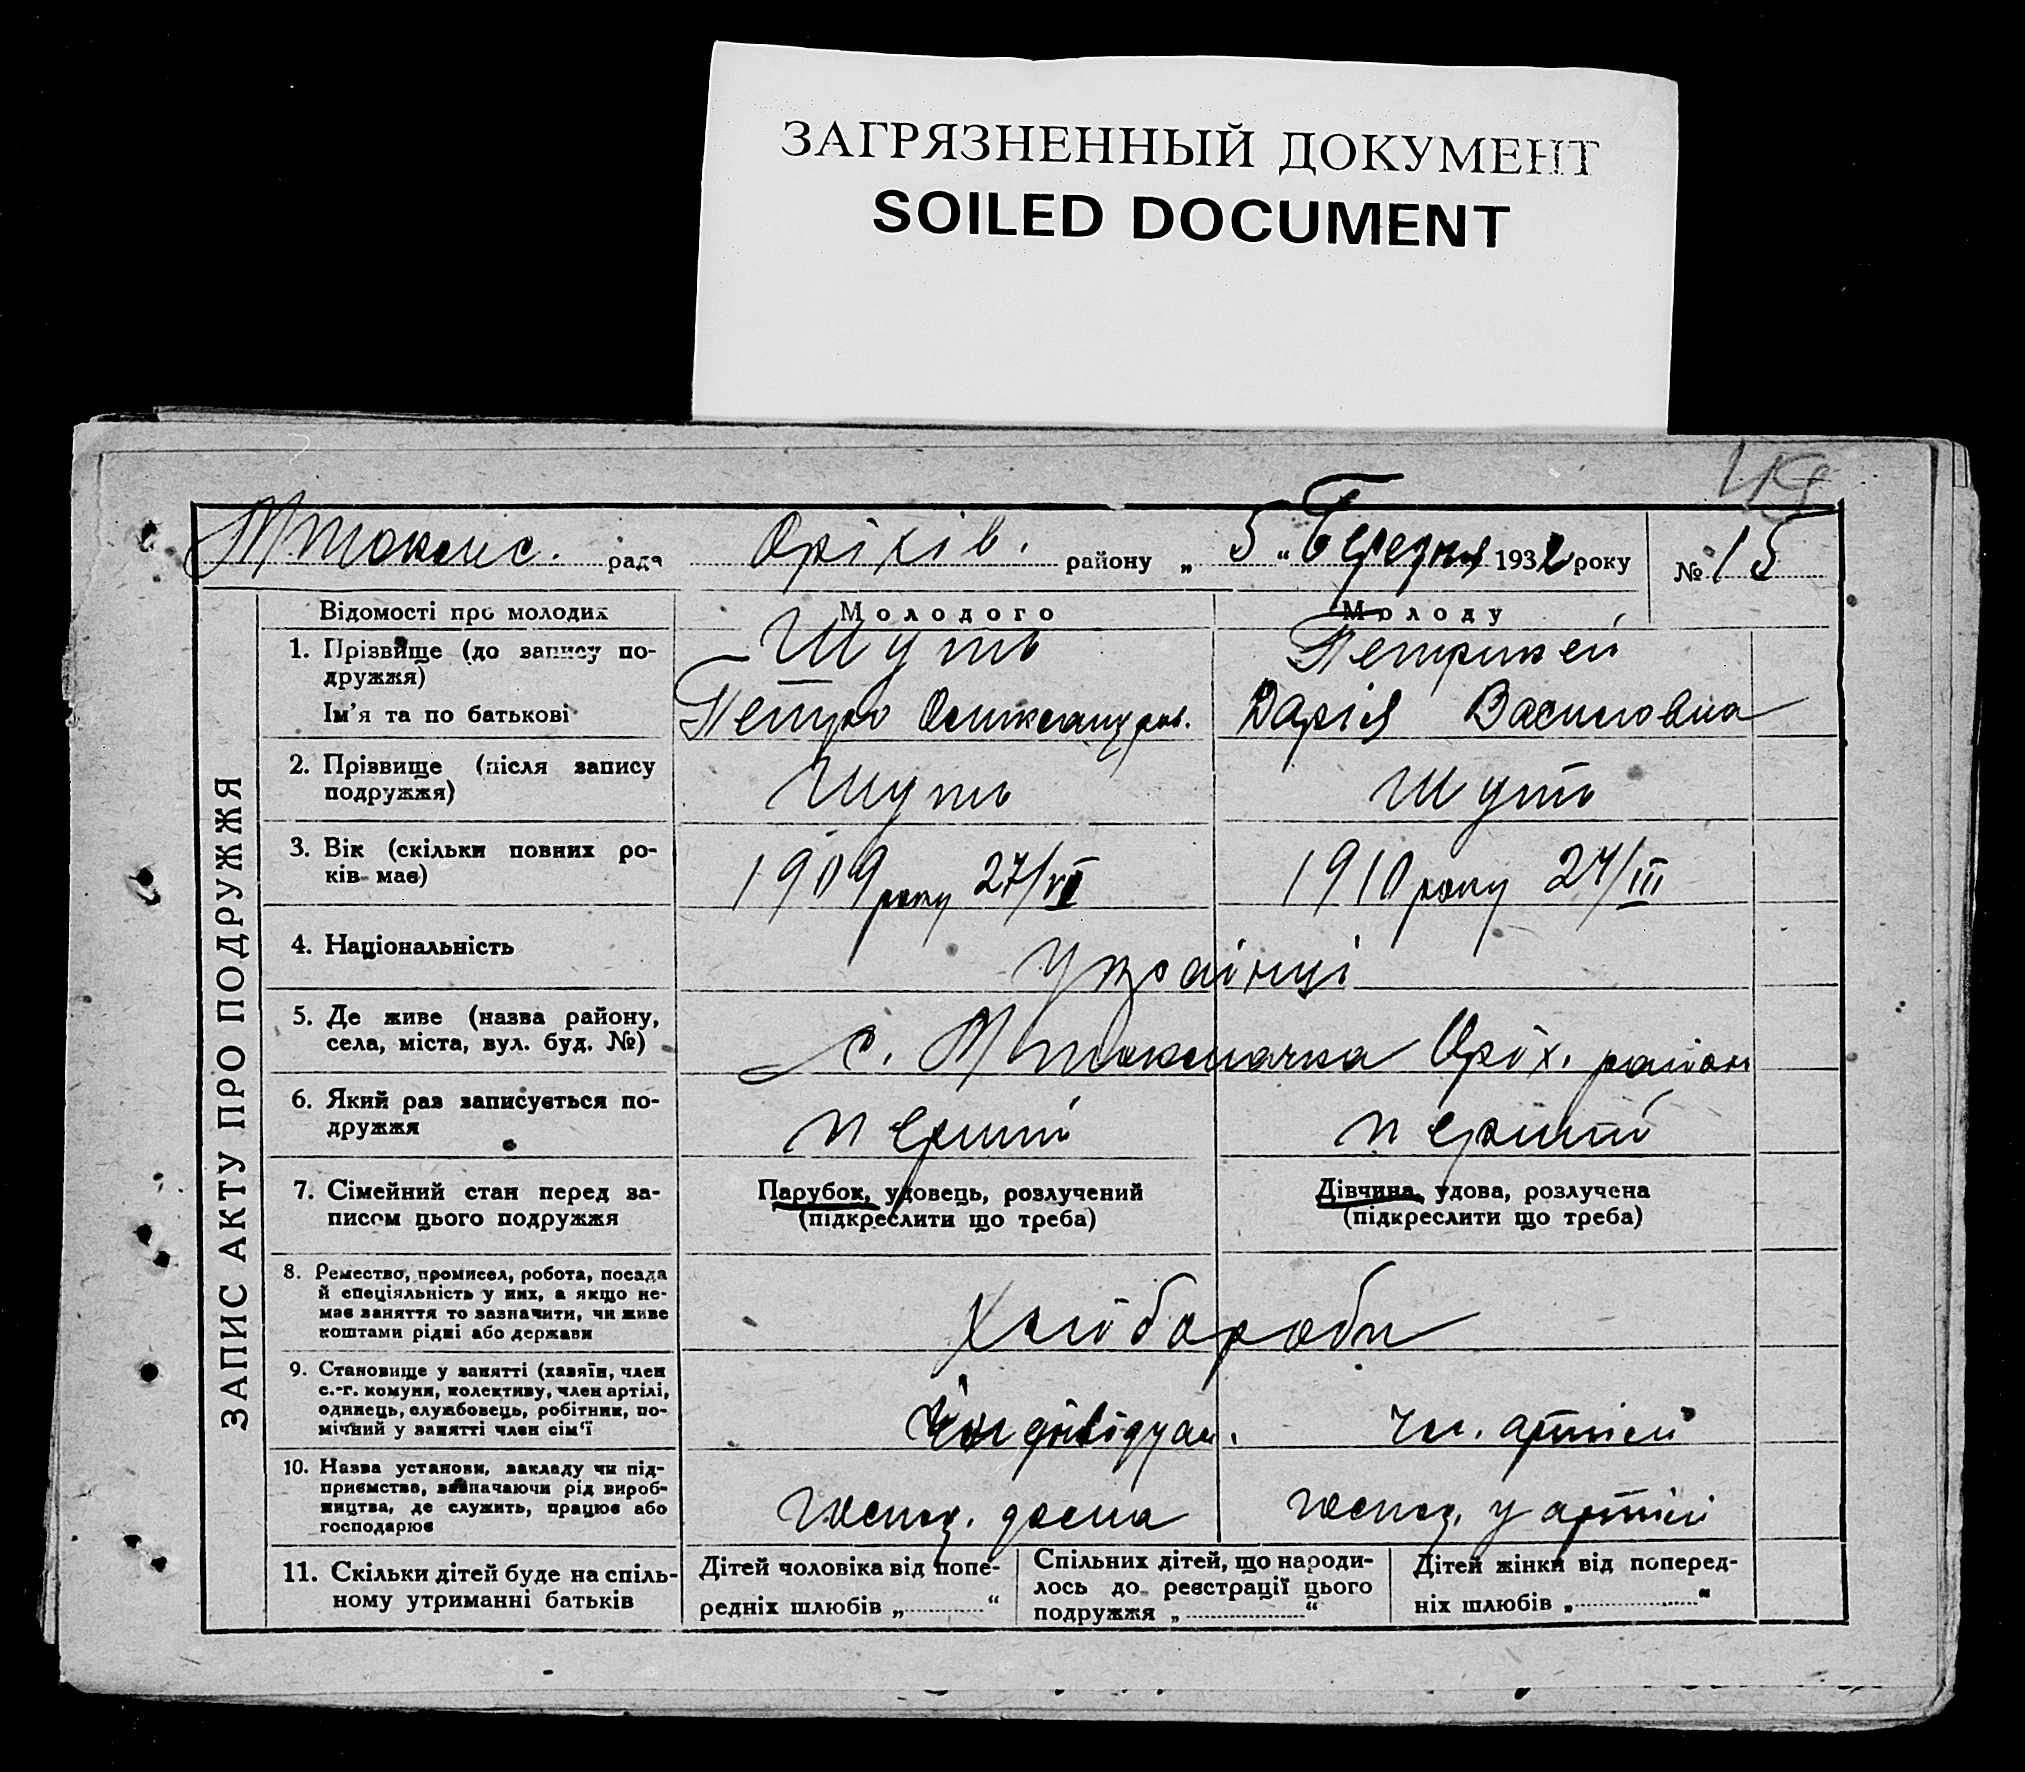 ЗАГРЯЗНЕННЫЙ ДОКУМЕНТ
SOILED DOCUMENT
49
М токмс. рада Оріхів. району „ 5 “ Березня 1932 року № 15
ЗАПИС АКТУ ПРО ПОДРУЖЖЯ
Відомості про молодих Молодого Молоду
1. Прізвище (до запису по-
дружжя)
Шуть Петрикей
Ім’я та по батькові Петро Олександров. Дарія Василовна
2. Прізвище (після запису
подружжя)
Шуть Шуть
3. Вік (скільки повних ро-
ків має)
1909 року 27/VI 1910 року 24/III
4. Національність Українці
5. Де живе (назва району,
села, міста, вул. буд. №)
с. М токмачка Оріх. район
6. Який раз записується по-
дружжя
перший перший
7. Сімейний стан перед за-
писом цього подружжя
Парубок, удовець, розлучений
(підкреслити що треба)
Дівчина, удова, розлучена
(підкреслити що треба)
8. Ремество, промисел, робота, посада
й спеціяльність у них, а якщо не-
має заняття то зазначити, чи живе
коштами рідні або держави
Хлібороби
9. Становище у занятті (хазяїн, член
с.-г. комуни, колективу, член артілі,
одинець, службовець, робітник, по-
мічний у занятті член сім'ї
індівідуал. чл. артілі
10. Назва установи, закладу чи під-
приємства, зазначаючи рід вироб-
ництва, де служить, працює або
господарює
господ. дома господ. у артілі
11. Скільки дітей буде на спіль-
ному утриманні батьків
Дітей чоловіка від попе-
редніх шлюбів „ “
Спільних дітей, що народи-
лось до реєстрації цього
подружжя „ “
Дітей жінки від поперед-
ніх шлюбів „ “